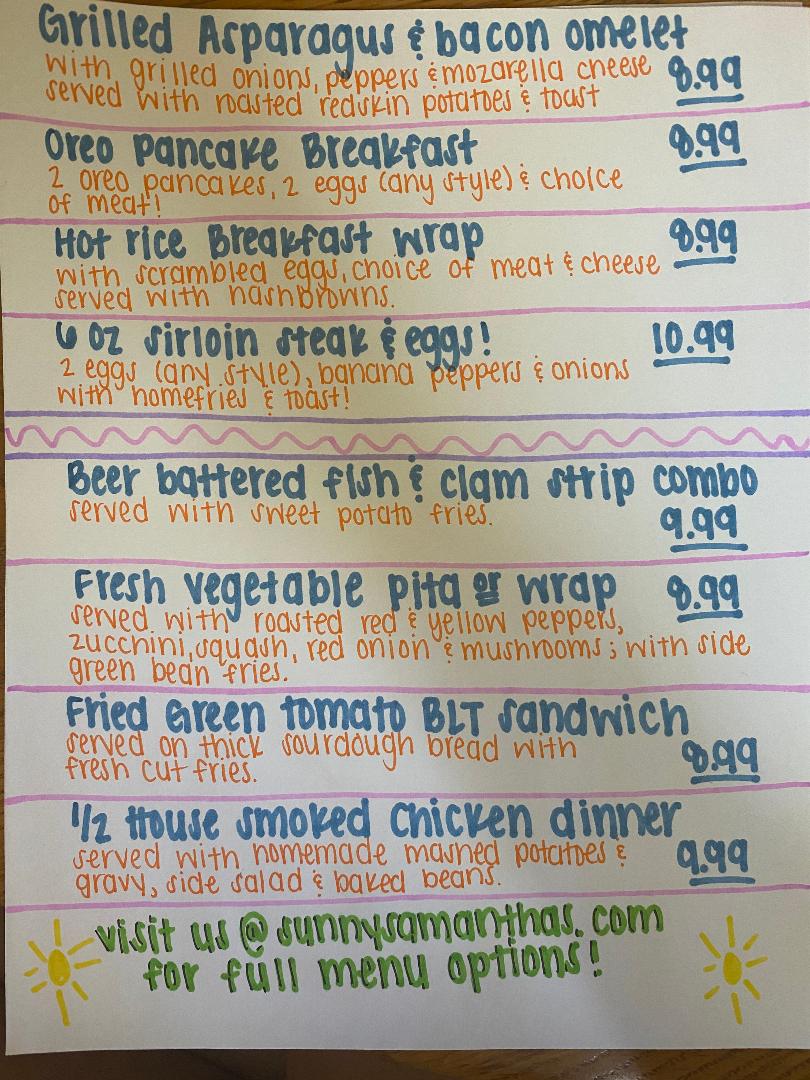 Grilled Asparagus & bacon omelet
with grilled onions, peppers & mozarella cheese 8.99
served with roasted redskin potatoes & toast
Oreo pancake Breakfast 8.99
2 oreo pancakes, 2 eggs (any style) & choice
of meat!
Hot rice Breakfast wrap 8.99
with scrambled eggs, choice of meat & cheese
served with hashbrowns.
6 oz sirloin steak & eggs! 10.99
2 eggs (any style), banana peppers & onions
with homefries & toast!
Beer battered fish & clam strip combo
served with sweet potato fries. 9.99
Fresh vegetable pita or wrap 8.99
served with roasted red & yellow peppers,
zucchini, squash, red onion & mushrooms; with side
green bean fries.
Fried Green tomato BLT sandwich
served on thick sourdough bread with 8.99
fresh cut fries.
1/2 House smoked Chicken dinner
served with homemade mashed potatoes & 9.99
gravy, side salad & baked beans.
visit us @ sunnysamanthas.com
for full menu options!